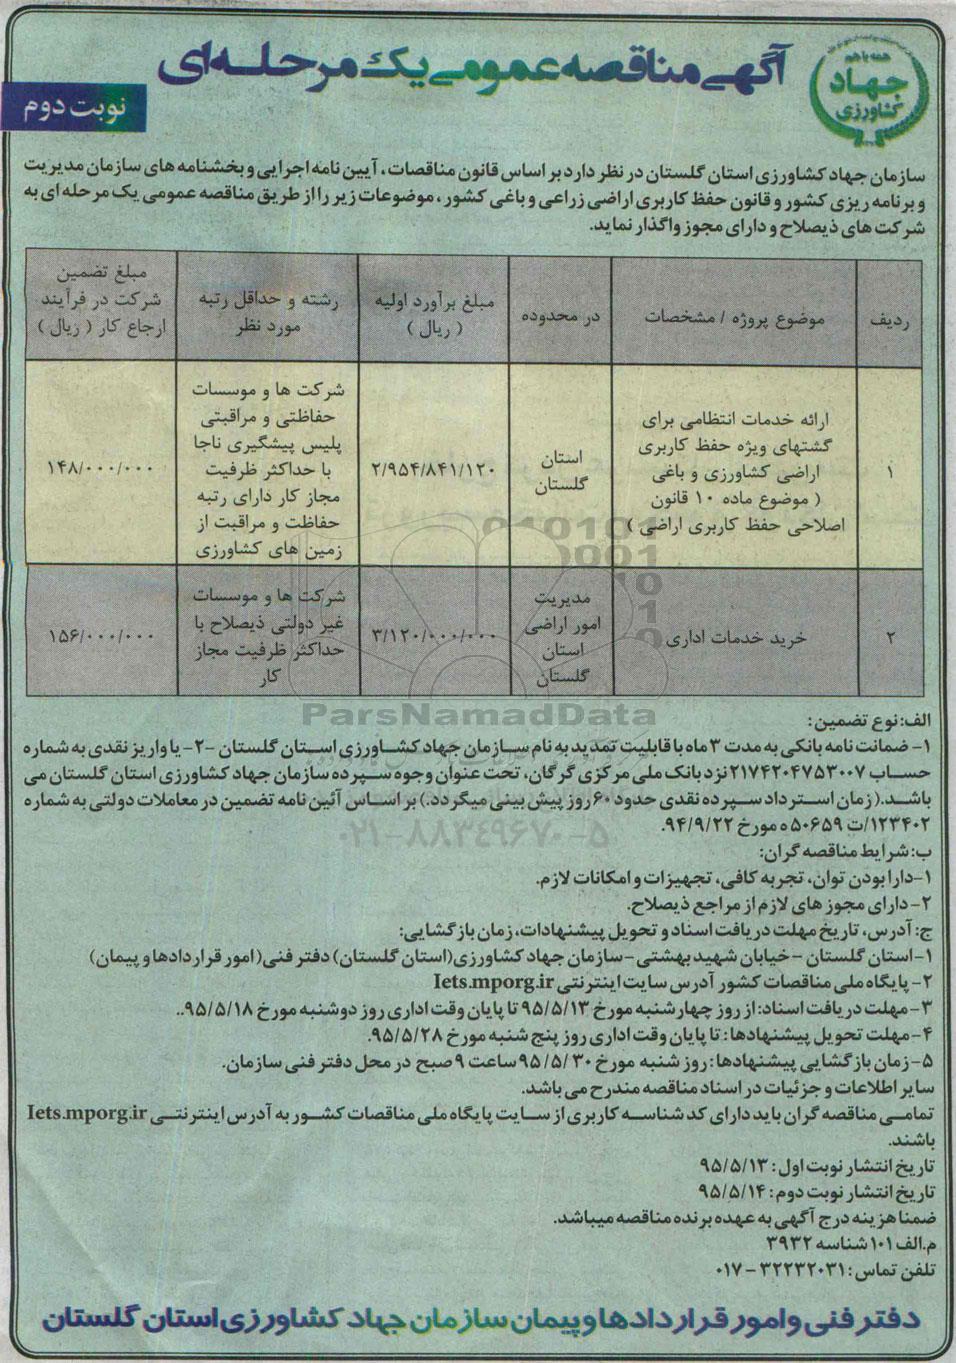 همه با هم
جهاد
کشاورزی
آگهی مناقصه عمومی یک مرحله‌ای
نوبت دوم
سازمان جهاد کشاورزی استان گلستان در نظر دارد بر اساس قانون مناقصات، آیین نامه اجرایی و بخشنامه های سازمان مدیریت
و برنامه ریزی کشور و قانون حفظ کاربری اراضی زراعی و باغی کشور، موضوعات زیر را از طریق مناقصه عمومی یک مرحله ای به
شرکت های ذیصلاح و دارای مجوز واگذار نماید.
ردیف
موضوع پروژه / مشخصات
در محدوده
مبلغ برآورد اولیه
( ریال )
رشته و حداقل رتبه
مورد نظر
مبلغ تضمین
شرکت در فرآیند
ارجاع کار ( ریال )
۱
ارائه خدمات انتظامی برای
گشتهای ویژه حفظ کاربری
اراضی کشاورزی و باغی
( موضوع ماده ۱۰ قانون
اصلاحی حفظ کاربری اراضی )
استان
گلستان
۲/۹۵۴/۸۴۱/۱۲۰
شرکت ها و موسسات
حفاظتی و مراقبتی
پلیس پیشگیری ناجا
با حداکثر ظرفیت
مجاز کار دارای رتبه
حفاظت و مراقبت از
زمین های کشاورزی
۱۴۸/۰۰۰/۰۰۰
۲
خرید خدمات اداری
مدیریت
امور اراضی
استان
گلستان
۳/۱۲۰/۰۰۰/۰۰۰
شرکت ها و موسسات
غیر دولتی ذیصلاح با
حداکثر ظرفیت مجاز
کار
۱۵۶/۰۰۰/۰۰۰
ParsNamadData
۰۲۱-۸۸۳۴۹۶۷۰-۵
الف: نوع تضمین:
۱- ضمانت نامه بانکی به مدت ۳ ماه با قابلیت تمدید به نام سازمان جهاد کشاورزی استان گلستان -۲- یا واریز نقدی به شماره
حساب ۲۱۷۴۲۰۴۷۵۳۰۰۷ نزد بانک ملی مرکزی گرگان، تحت عنوان وجوه سپرده سازمان جهاد کشاورزی استان گلستان می
باشد.( زمان استرداد سپرده نقدی حدود ۶۰ روز پیش بینی میگردد.) بر اساس آئین نامه تضمین در معاملات دولتی به شماره
۱۲۳۴۰۲/ت ۵۰۶۵۹ه مورخ ۹۴/۹/۲۲.
ب: شرایط مناقصه گران:
۱-دارا بودن توان، تجربه کافی، تجهیزات و امکانات لازم.
۲-دارای مجوز های لازم از مراجع ذیصلاح.
ج: آدرس، تاریخ مهلت دریافت اسناد و تحویل پیشنهادات، زمان بازگشایی:
۱-استان گلستان - خیابان شهید بهشتی - سازمان جهاد کشاورزی(استان گلستان) دفتر فنی( امور قراردادها و پیمان)
۲- پایگاه ملی مناقصات کشور آدرس سایت اینترنتی Iets.mporg.ir
۳-مهلت دریافت اسناد: از روز چهارشنبه مورخ ۹۵/۵/۱۳ تا پایان وقت اداری روز دوشنبه مورخ ۹۵/۵/۱۸..
۴-مهلت تحویل پیشنهادها: تا پایان وقت اداری روز پنج شنبه مورخ ۹۵/۵/۲۸.
۵-زمان بازگشایی پیشنهادها: روز شنبه مورخ ۹۵/۵/۳۰ ساعت ۹ صبح در محل دفتر فنی سازمان.
سایر اطلاعات و جزئیات در اسناد مناقصه مندرج می باشد.
تمامی مناقصه گران باید دارای کد شناسه کاربری از سایت پایگاه ملی مناقصات کشور به آدرس اینترنتی Iets.mporg.ir
باشند.
تاریخ انتشار نوبت اول: ۹۵/۵/۱۳
تاریخ انتشار نوبت دوم: ۹۵/۵/۱۴
ضمنا هزینه درج آگهی به عهده برنده مناقصه میباشد.
م.الف ۱۰۱ شناسه ۳۹۳۲
تلفن تماس: ۳۲۲۳۲۰۳۱ - ۰۱۷
دفتر فنی و امور قراردادها و پیمان سازمان جهاد کشاورزی استان گلستان